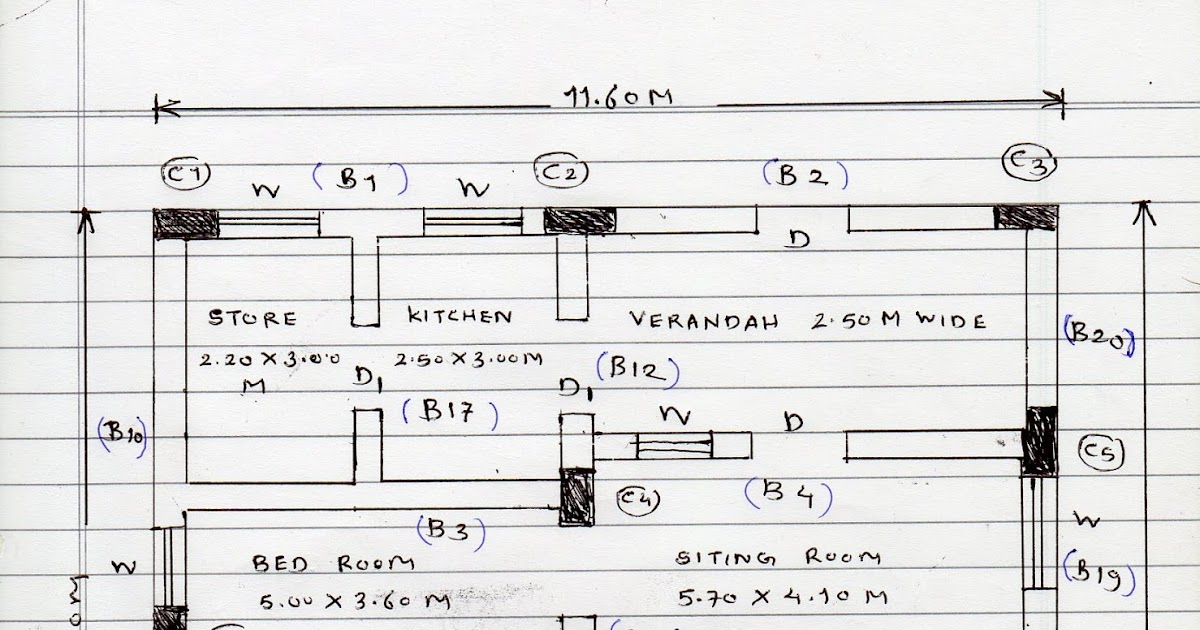 11.60 M
C1 W (B1) W C2 (B2) C3
D
STORE KITCHEN VERANDAH 2.50 M WIDE
(B20)
2.20 X 3.00 2.50 X 3.00 M
M D1 D1 (B12)
(B17) W D
(B10) C5
C4 (B4)
(B3) W
W BED ROOM SITING ROOM (B19)
5.00 X 3.60 M 5.70 X 4.10 M